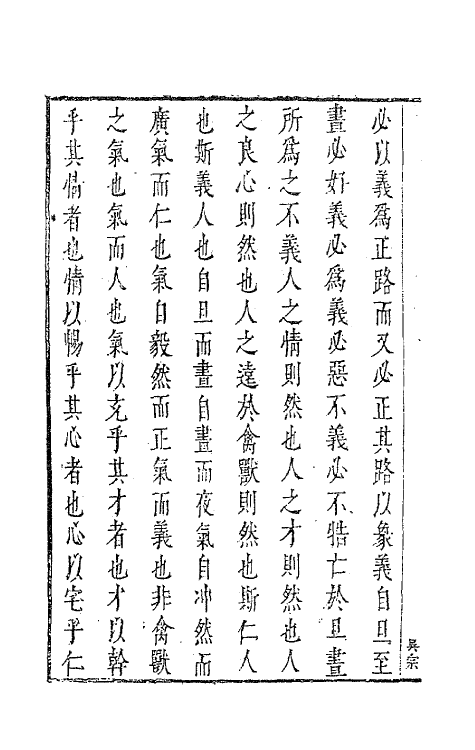 必以義爲正路而又必正其路以象義自旦至
晝必好義必爲義必惡不義必不牿亡於旦晝
所爲之不義人之情則然也人之才則然也人
之良心則然也人之遠於禽獸則然也斯仁人
也斯義人也自旦而晝自晝而夜氣自冲然而
廣氣而仁也氣自毅然而正氣而義也非禽獸
之氣也氣而人也氣以充乎其才者也才以幹
乎其情者也情以暢乎其心者也心以宅乎仁
吳宗